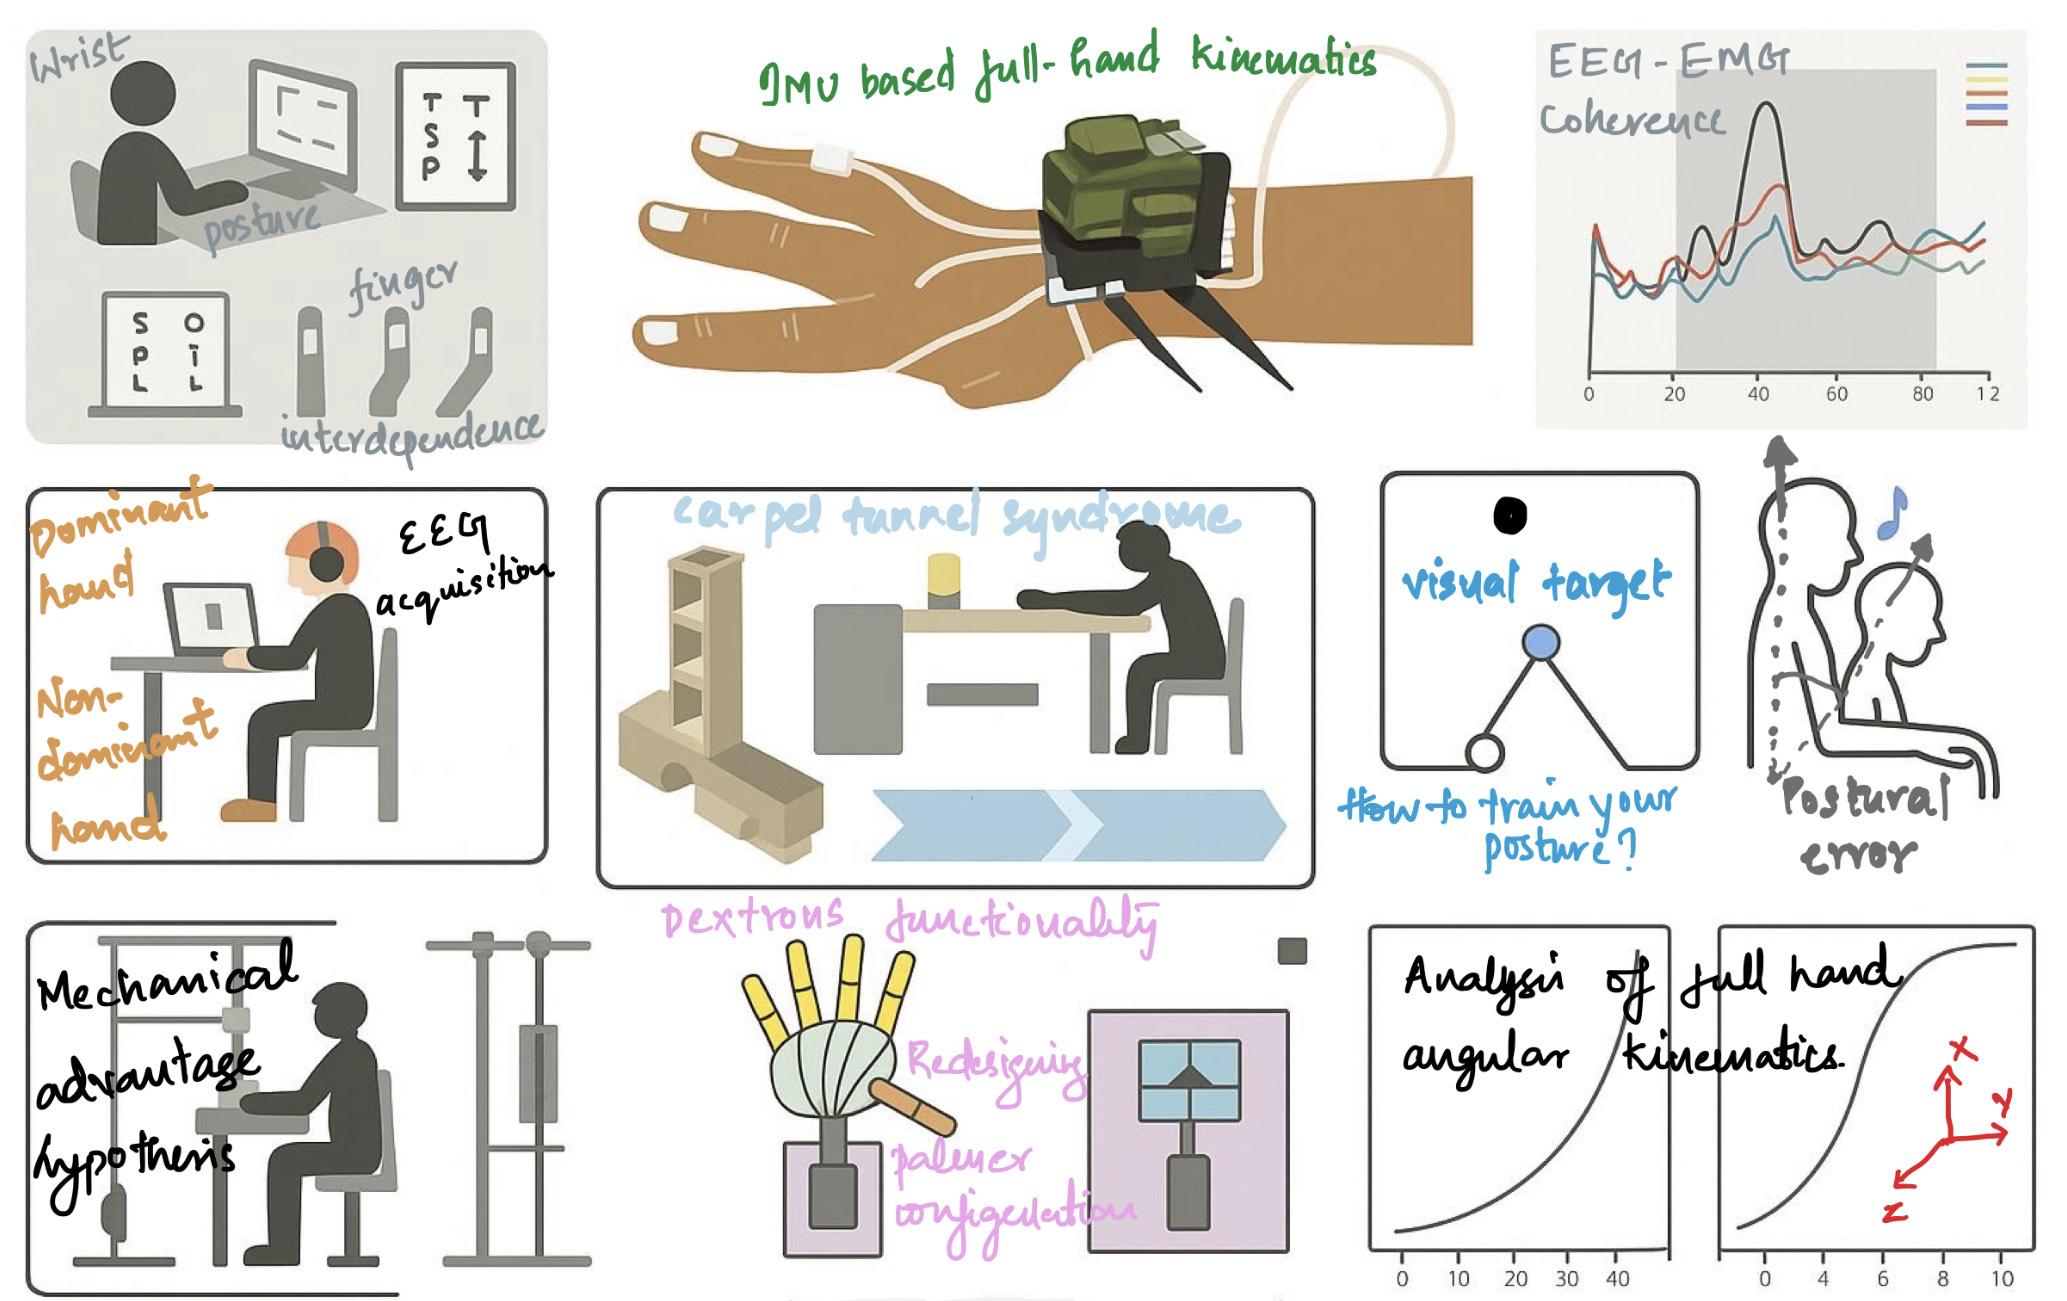 Wrist
posture
T T
S
P
S O
P I
L L
finger
interdependence
IMU based full-hand kinematics
EEG-EMG
Coherence
0 20 40 60 80 12
Dominant
hand
Non-
dominant
hand
EEG
acquisition
carpel tunnel syndrome
visual target
How to train your
posture?
Postural
error
Mechanical
advantage
hypothesis
Dextrous functionality
Redesigning
palmer
configeulation
Analysis of full hand
angular kinematics.
X
y
Z
0 10 20 30 40
0 4 6 8 10